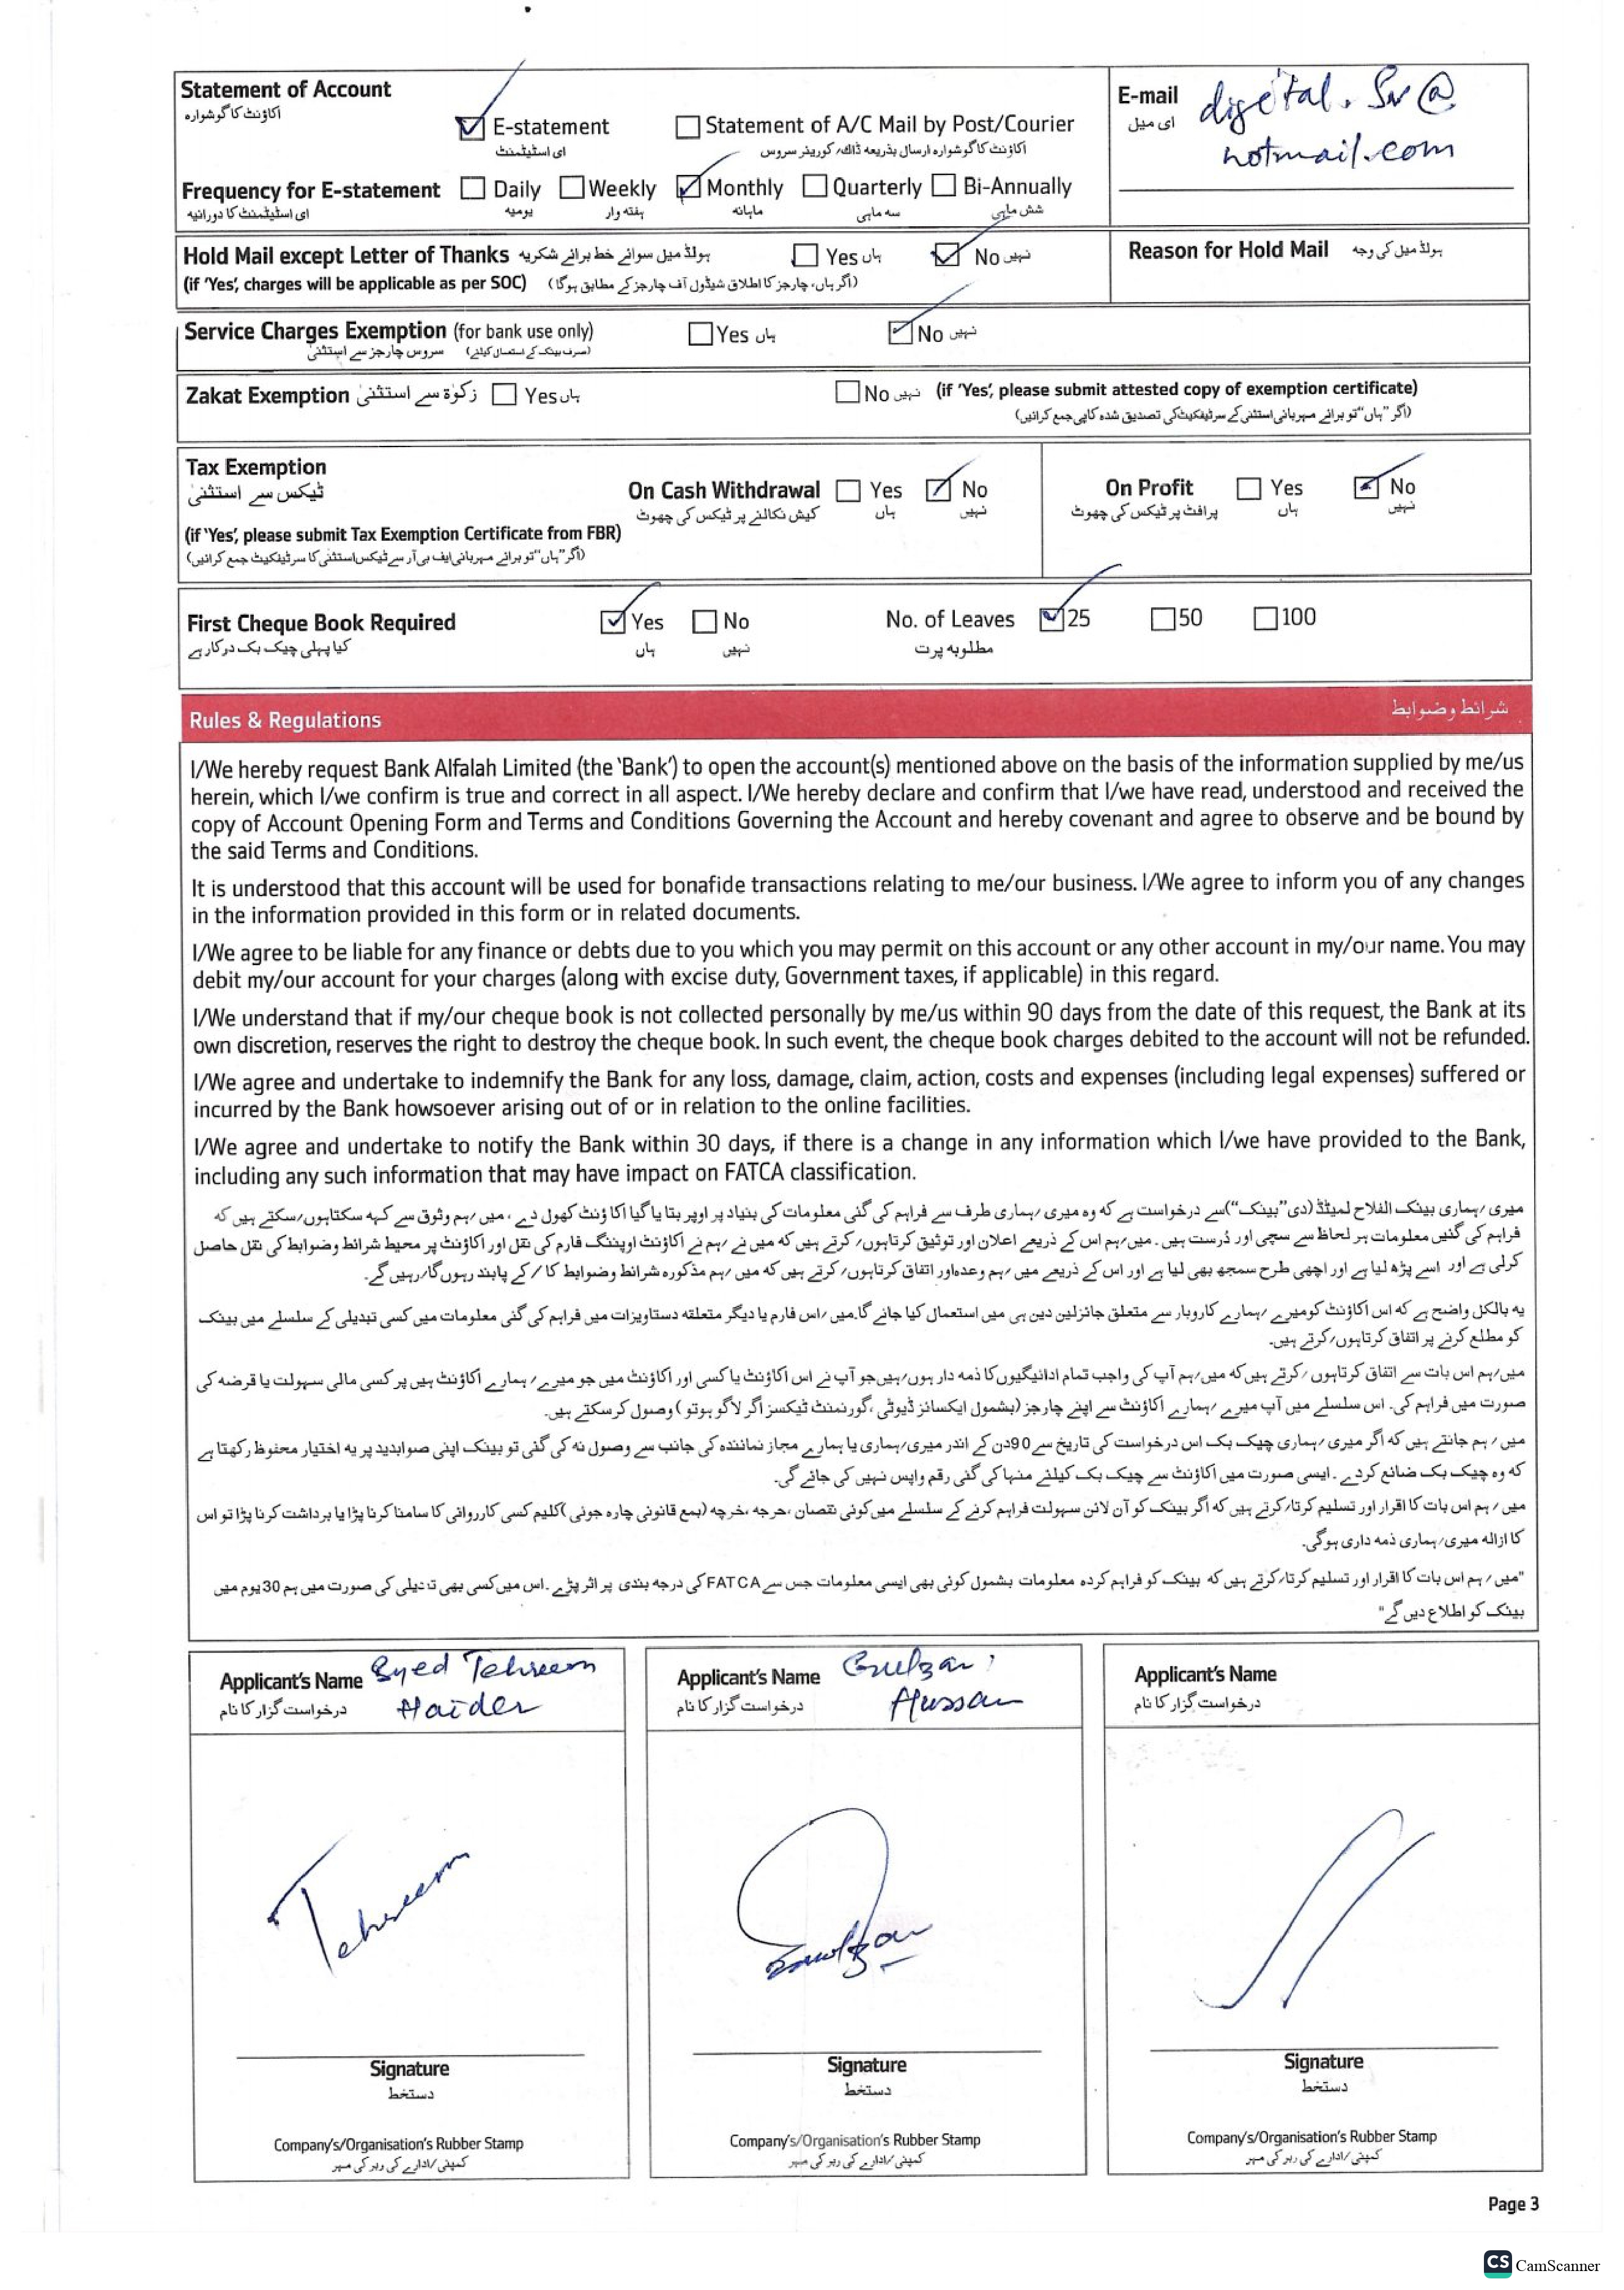 Statement of Account
اکاؤنٹ کا گوشوارہ
E-statement
ای اسٹیٹمنٹ
Statement of A/C Mail by Post/Courier
اکاؤنٹ کا گوشوارہ ارسال بذریعہ ڈاک، کوریئر سروس
E-mail digital.Sw@
ای میل
hotmail.com
Frequency for E-statement Daily Weekly Monthly Quarterly Bi-Annually
ای اسٹیٹمنٹ کا دورانیہ یومیہ ہفتہ وار ماہانہ سہ ماہی شش ماہی
Hold Mail except Letter of Thanks ہولڈ میل سوائے خط برائے شکریہ Yes ہاں No نہیں
(if 'Yes', charges will be applicable as per SOC) (اگر ہاں، چارجز کا اطلاق شیڈول آف چارجز کے مطابق ہوگا)
Reason for Hold Mail ہولڈ میل کی وجہ
Service Charges Exemption (for bank use only) Yes ہاں No نہیں
سروس چارجز سے استثنیٰ (صرف بینک کے استعمال کیلئے)
Zakat Exemption زکوٰۃ سے استثنیٰ Yes ہاں No نہیں (if 'Yes', please submit attested copy of exemption certificate)
(اگر "ہاں" تو برائے مہربانی استثنٰی کے سرٹیفکیٹ کی تصدیق شدہ کاپی جمع کرائیں)
Tax Exemption
ٹیکس سے استثنیٰ
On Cash Withdrawal Yes No
کیش نکالنے پر ٹیکس کی چھوٹ ہاں نہیں
On Profit Yes No
پرافٹ پر ٹیکس کی چھوٹ ہاں نہیں
(if 'Yes', please submit Tax Exemption Certificate from FBR)
(اگر "ہاں" تو برائے مہربانی ایف بی آر سے ٹیکس استثنٰی کا سرٹیفکیٹ جمع کرائیں)
First Cheque Book Required Yes No No. of Leaves 25 50 100
کیا پہلی چیک بک درکار ہے ہاں نہیں مطلوبہ پرت
Rules & Regulations شرائط وضوابط
I/We hereby request Bank Alfalah Limited (the 'Bank') to open the account(s) mentioned above on the basis of the information supplied by me/us
herein, which I/we confirm is true and correct in all aspect. I/We hereby declare and confirm that I/we have read, understood and received the
copy of Account Opening Form and Terms and Conditions Governing the Account and hereby covenant and agree to observe and be bound by
the said Terms and Conditions.
It is understood that this account will be used for bonafide transactions relating to me/our business. I/We agree to inform you of any changes
in the information provided in this form or in related documents.
I/We agree to be liable for any finance or debts due to you which you may permit on this account or any other account in my/our name. You may
debit my/our account for your charges (along with excise duty, Government taxes, if applicable) in this regard.
I/We understand that if my/our cheque book is not collected personally by me/us within 90 days from the date of this request, the Bank at its
own discretion, reserves the right to destroy the cheque book. In such event, the cheque book charges debited to the account will not be refunded.
I/We agree and undertake to indemnify the Bank for any loss, damage, claim, action, costs and expenses (including legal expenses) suffered or
incurred by the Bank howsoever arising out of or in relation to the online facilities.
I/We agree and undertake to notify the Bank within 30 days, if there is a change in any information which I/we have provided to the Bank,
including any such information that may have impact on FATCA classification.
میری/ہماری بینک الفلاح لمیٹڈ (دی "بینک") سے درخواست ہے کہ وہ میری/ہماری طرف سے فراہم کی گئی معلومات کی بنیاد پر اوپر بتایا گیا اکاؤنٹ کھول دے، میں/ہم وثوق سے کہہ سکتا ہوں/سکتے ہیں کہ
فراہم کی گئیں معلومات ہر لحاظ سے سچی اور دُرست ہیں۔ میں/ہم اس کے ذریعے اعلان اور توثیق کرتا ہوں/کرتے ہیں کہ میں نے/ہم نے اکاؤنٹ اوپننگ فارم کی نقل اور اکاؤنٹ پر محیط شرائط وضوابط کی نقل حاصل
کرلی ہے اور اسے پڑھ لیا ہے اور اچھی طرح سمجھ بھی لیا ہے اور اس کے ذریعے میں/ہم وعدہ اور اتفاق کرتا ہوں/کرتے ہیں کہ میں/ہم مذکورہ شرائط وضوابط کا/کے پابند رہوں گا/رہیں گے۔
یہ بالکل واضح ہے کہ اس اکاؤنٹ کو میرے/ہمارے کاروبار سے متعلق جائز لین دین ہی میں استعمال کیا جائے گا۔ میں/اس فارم یا دیگر متعلقہ دستاویزات میں فراہم کی گئی معلومات میں کسی تبدیلی کے سلسلے میں بینک
کو مطلع کرنے پر اتفاق کرتا ہوں/کرتے ہیں۔
میں/ہم اس بات سے اتفاق کرتا ہوں/کرتے ہیں کہ میں/ہم آپ کی واجب تمام ادائیگیوں کا ذمہ دار ہوں/ہیں جو آپ نے اس اکاؤنٹ یا کسی اور اکاؤنٹ میں جو میرے/ہمارے اکاؤنٹ ہیں پر کسی مالی سہولت یا قرضہ کی
صورت میں فراہم کی۔ اس سلسلے میں آپ میرے/ہمارے اکاؤنٹ سے اپنے چارجز (بشمول ایکسائز ڈیوٹی، گورنمنٹ ٹیکسز اگر لاگو ہو تو) وصول کر سکتے ہیں۔
میں/ہم جانتے ہیں کہ اگر میری/ہماری چیک بک اس درخواست کی تاریخ سے 90 دن کے اندر میری/ہماری یا ہمارے مجاز نمائندہ کی جانب سے وصول نہ کی گئی تو بینک اپنی صوابدید پر یہ اختیار محفوظ رکھتا ہے
کہ وہ چیک بک ضائع کردے۔ ایسی صورت میں اکاؤنٹ سے چیک بک کیلئے منہا کی گئی رقم واپس نہیں کی جائے گی۔
میں/ہم اس بات کا اقرار اور تسلیم کرتا/کرتے ہیں کہ اگر بینک کو آن لائن سہولت فراہم کرنے کے سلسلے میں کوئی نقصان، حرجہ، خرچہ (بمع قانونی چارہ جوئی) کلیم کسی کارروائی کا سامنا کرنا پڑا یا برداشت کرنا پڑا تو اس
کا ازالہ میری/ہماری ذمہ داری ہوگی۔
"میں/ہم اس بات کا اقرار اور تسلیم کرتا/کرتے ہیں کہ بینک کو فراہم کردہ معلومات بشمول کوئی بھی ایسی معلومات جس سے FATCA کی درجہ بندی پر اثر پڑے۔ اس میں کسی بھی تبدیلی کی صورت میں ہم 30 یوم میں
بینک کو اطلاع دیں گے"
Applicant's Name Syed Tehreem
درخواست گزار کا نام Haider
Applicant's Name Gulzar
درخواست گزار کا نام Hussan
Applicant's Name
درخواست گزار کا نام
Tehreem
Gulzar
Signature Signature Signature
دستخط دستخط دستخط
Company's/Organisation's Rubber Stamp Company's/Organisation's Rubber Stamp Company's/Organisation's Rubber Stamp
کمپنی/ادارے کی ربر کی مہر کمپنی/ادارے کی ربر کی مہر کمپنی/ادارے کی ربر کی مہر
Page 3
CS CamScanner